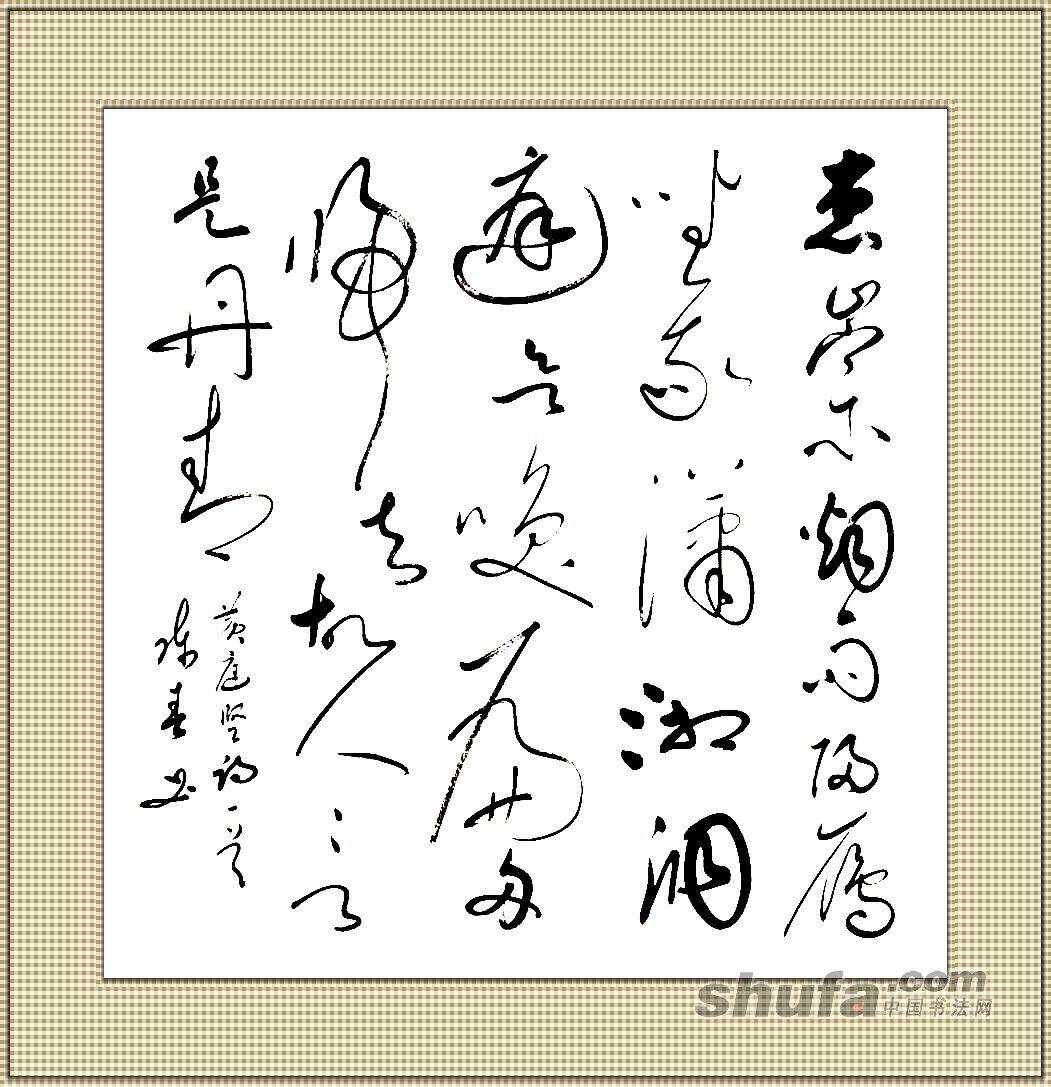 惠崇烟雨归雁
坐我潇湘洞
庭欲唤扁舟
归去故人言
是丹青
黄庭坚诗一首
陈春书
shufa.com
中国书法网